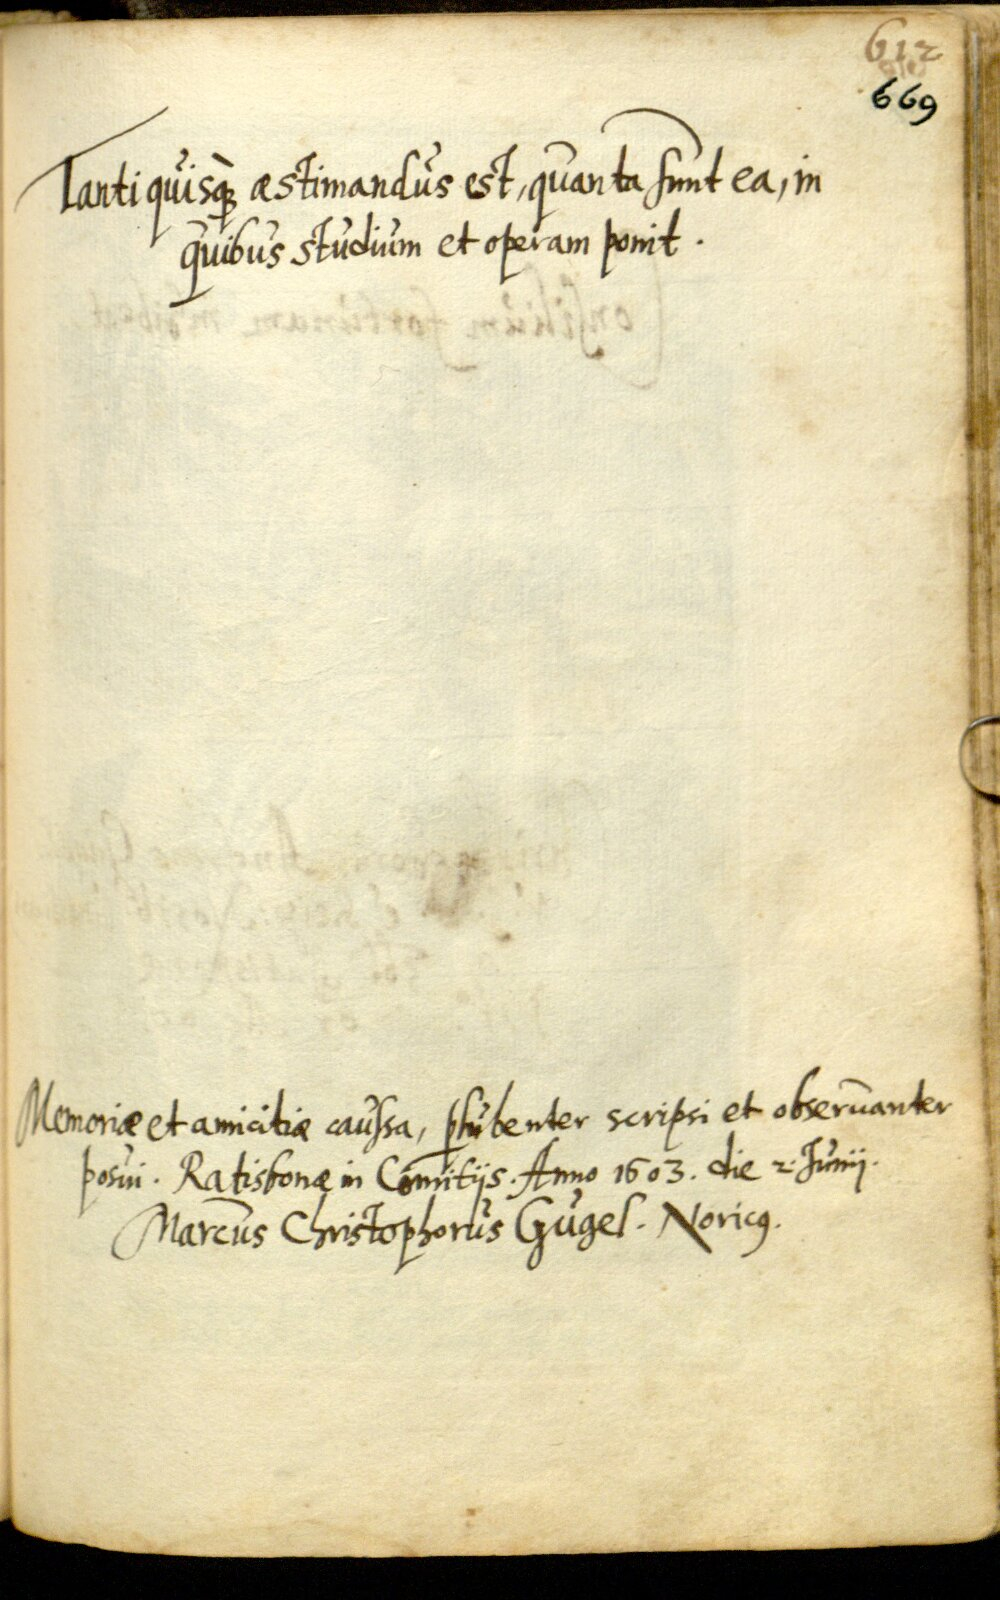 612
669
Tanti quisq; æstimandus est, quanta sunt ea, in
quibus studium et operam ponit.
Memoriæ et amicitiæ caussa, plubenter scripsi et obseruanter
posui. Ratisbonæ in Comitijs. Anno 1603. die 2. Junij.
Marcus Christophorus Gugel. Noricꝰ.